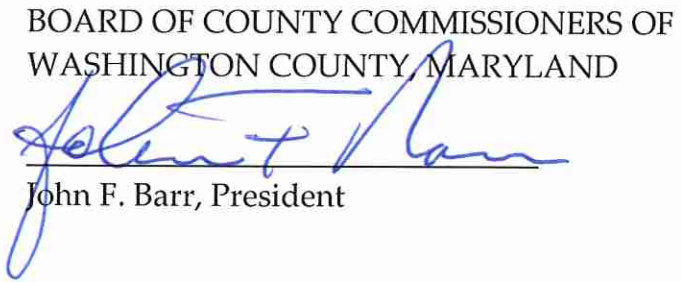 BOARD OF COUNTY COMMISSIONERS OF
WASHINGTON COUNTY, MARYLAND
John F. Barr
John F. Barr, President